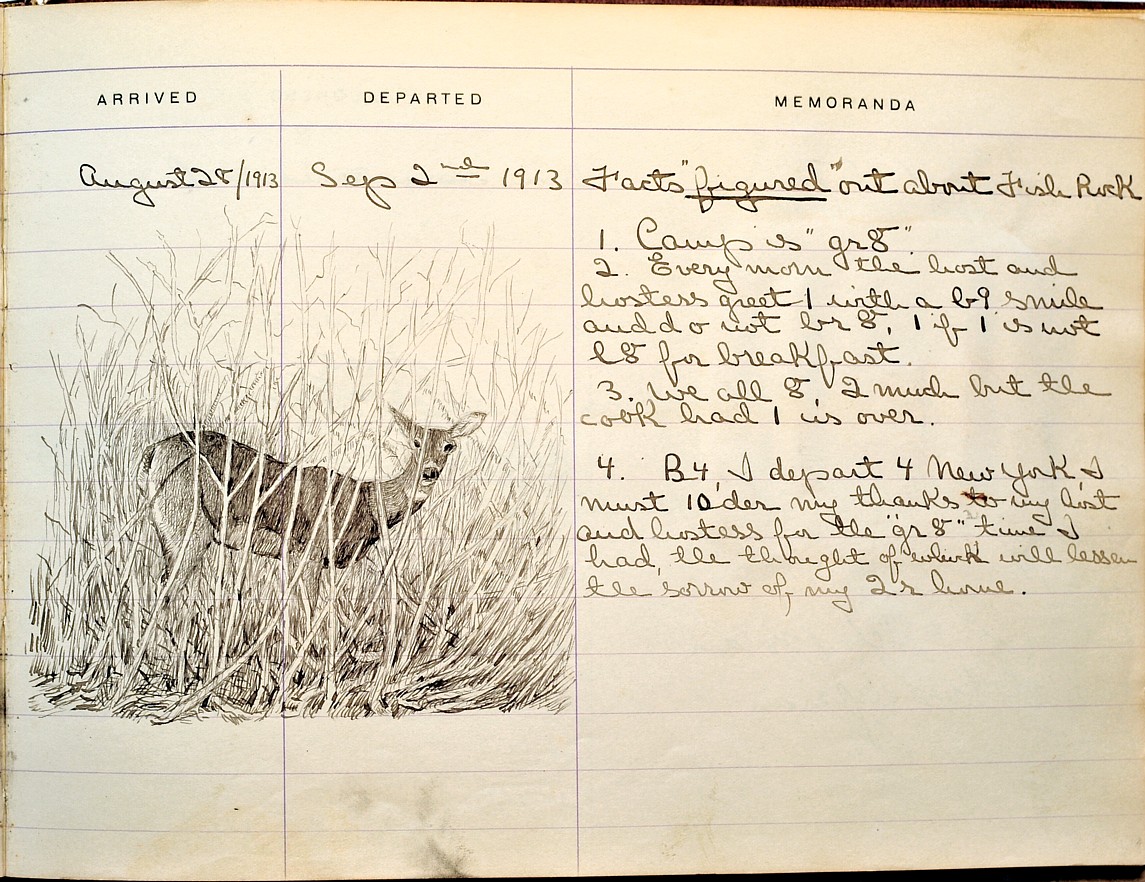 ARRIVED DEPARTED MEMORANDA
August 28/1913 Sep 2nd 1913 Facts "figured" out about Fish Rock
1. Camp is "gr8".
2. Every morn the host and
hostess greet 1 with a b9 smile
and do not br8, 1 if 1 is not
l8 for breakfast.
3. We all 8, 2 much but the
cook had 1 us over.
4. B4, I depart 4 New York, I
must 10der my thanks to my host
and hostess for the "gr8" time I
had, the thought of which will lessen
the sorrow of my 2r home.